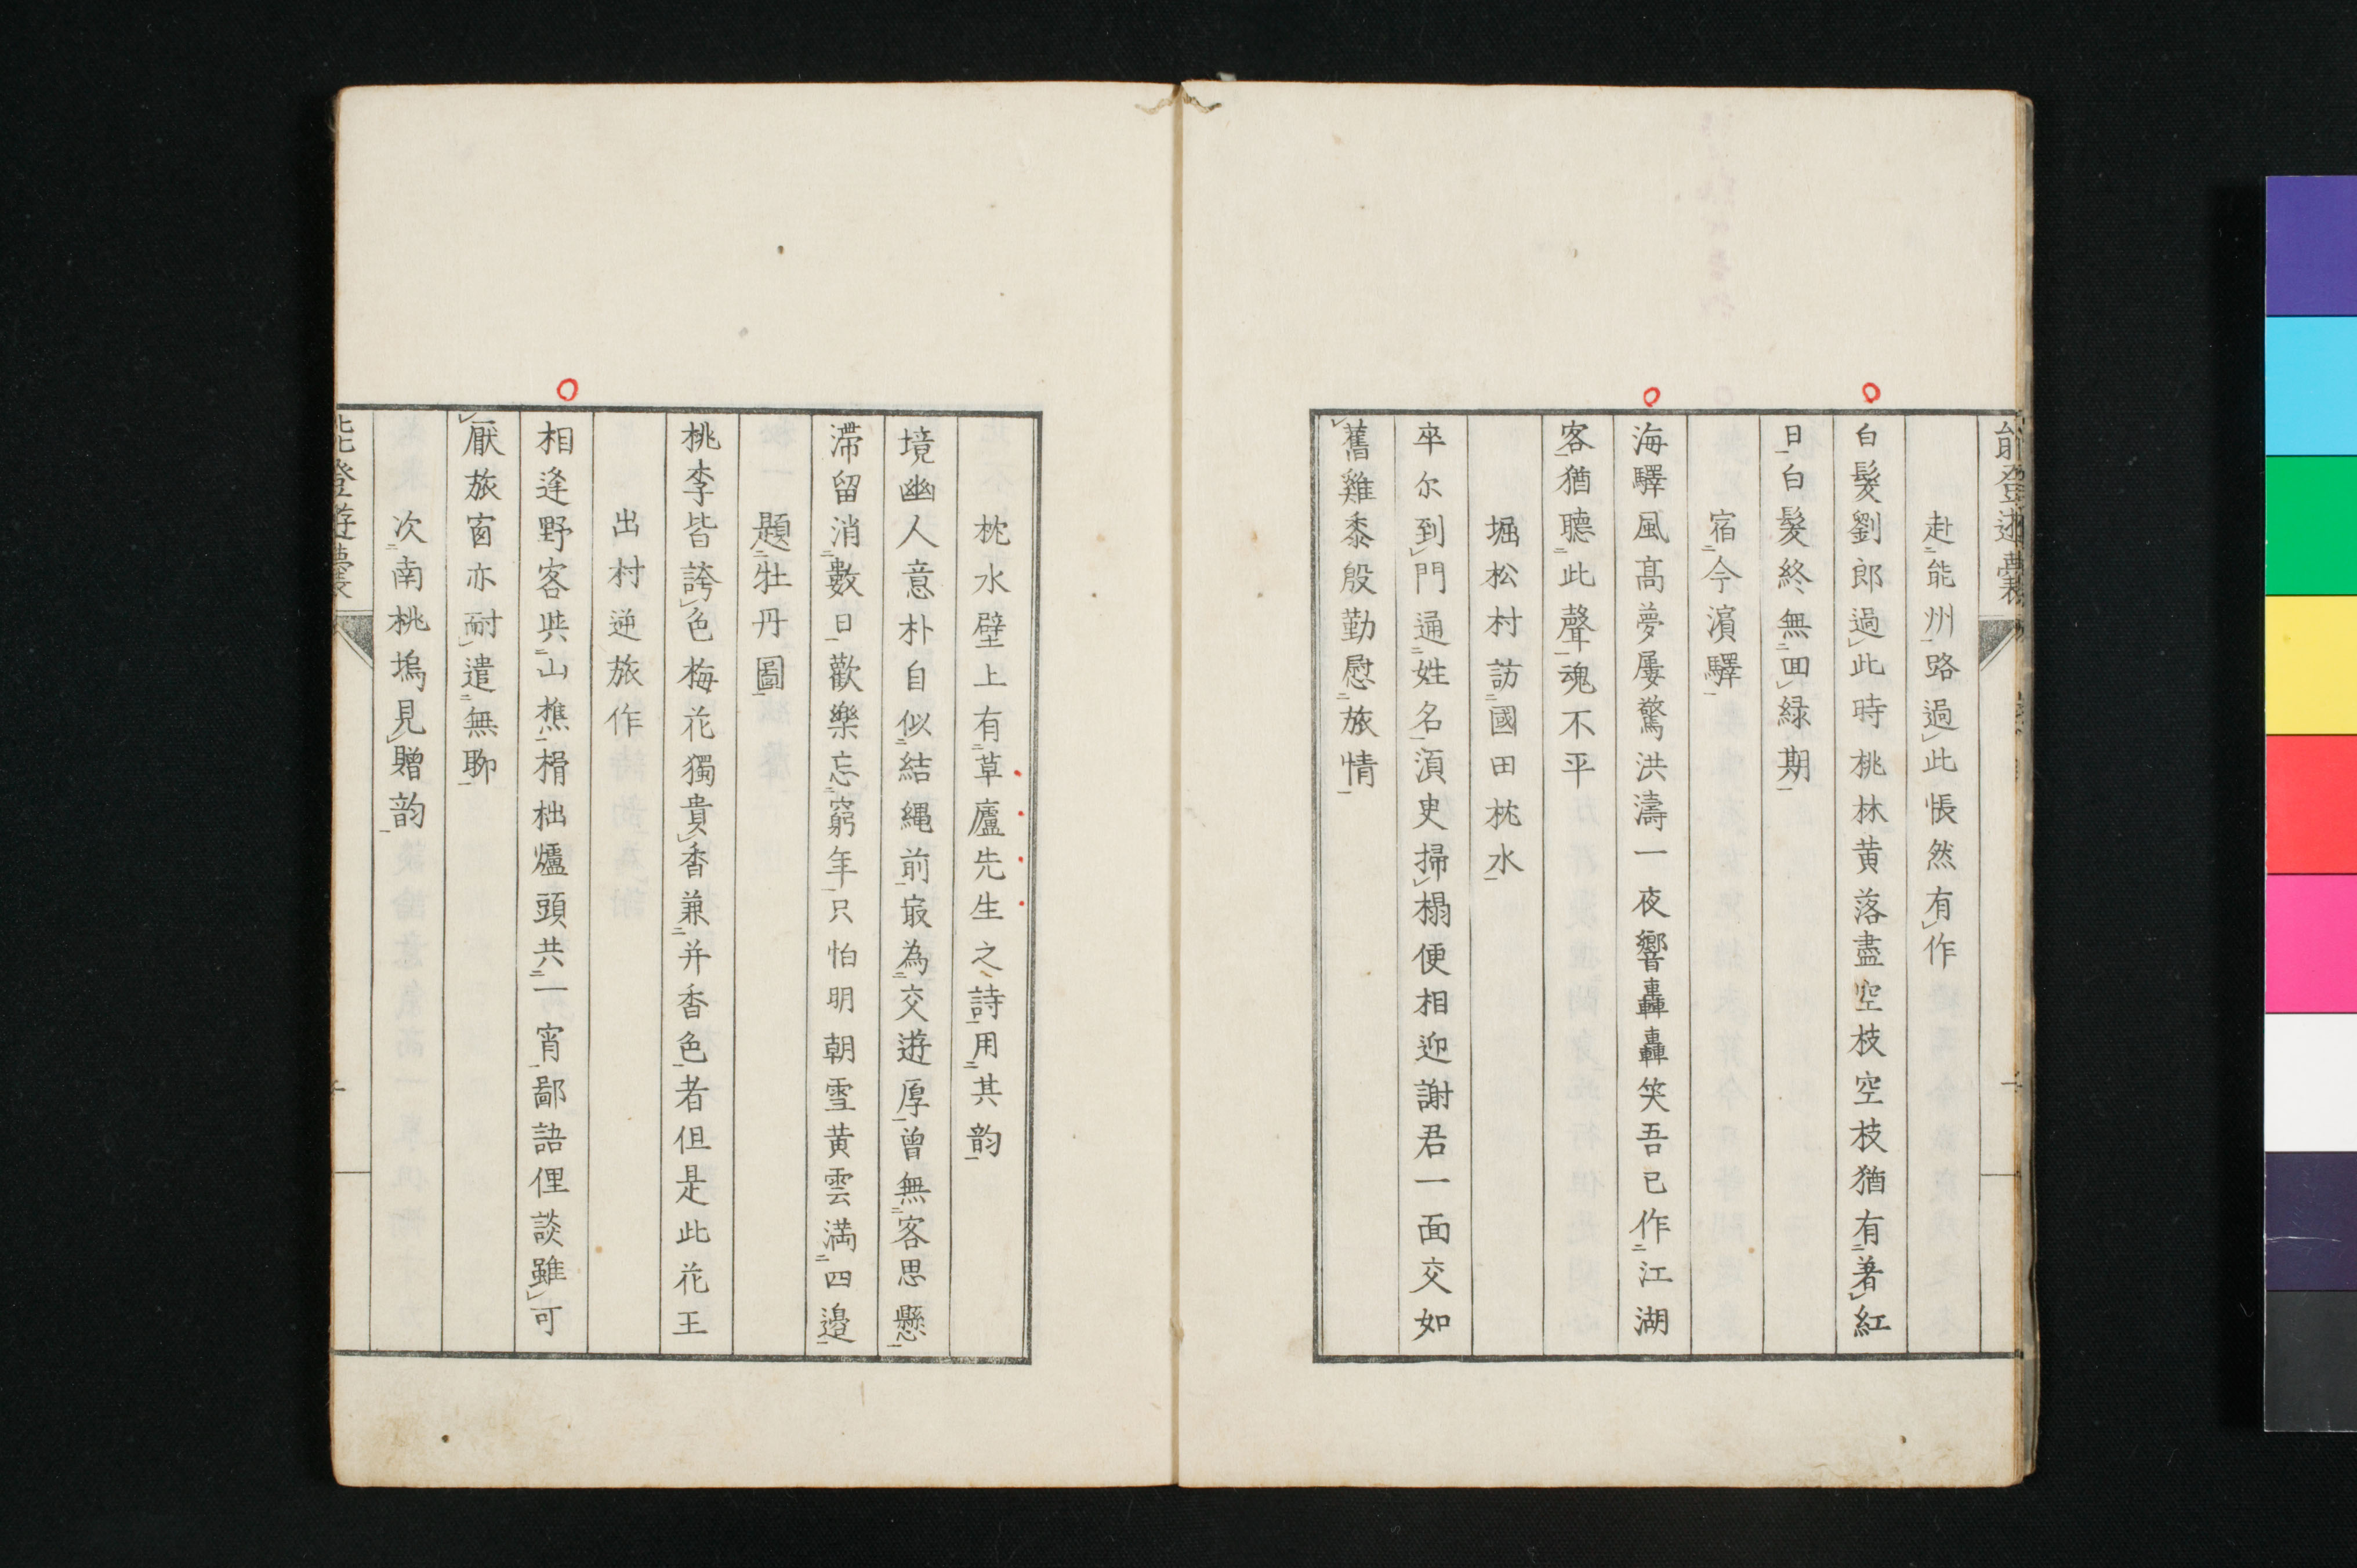 能登遊囊
赴能州路過此悵然有作
白髮劉郎過此時桃林黄落盡空枝空枝猶有著紅
日白髮終無回緑期
宿今濵驛
海驛風髙夢屢驚洪濤一夜響轟轟笑吾已作江湖
客猶聽此聲魂不平
堀松村訪國田枕水
卒尔到門通姓名湏史掃榻便相迎謝君一面交如
舊雞黍殷勤慰旅情
枕水壁上有草廬先生之詩用其韵
境幽人意朴自似結縄前㝡為交遊厚曾無客思懸
滞留消數日歡樂忘窮年只怕明朝雪黄雲満四邉
題牡丹圖
桃李皆誇色梅花獨貴香兼并香色者但是此花王
出村逆旅作
相逢野客與山樵榾柮爐頭共一宵鄙語俚談雖可
厭旅窗亦耐遣無聊
次南桃塢見贈韵
能登遊囊